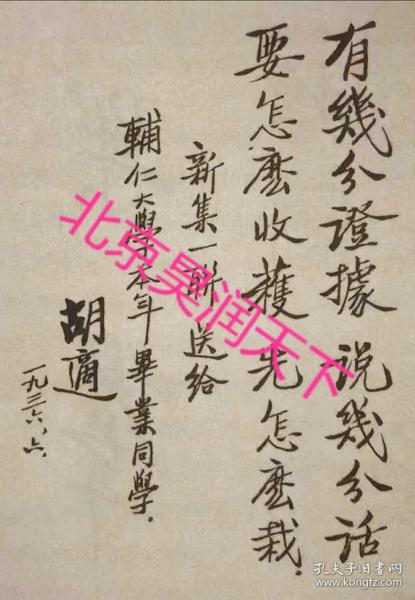 有幾分證據 说幾分話
要怎麽收穫先怎麽栽.
新集一聨送给
輔仁大學本年畢業同學.
胡適
一九三六、六、
北京昊润天下
孔夫子旧书网
www.kongfz.com